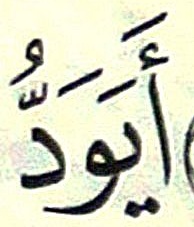 أَيَوَدُّ